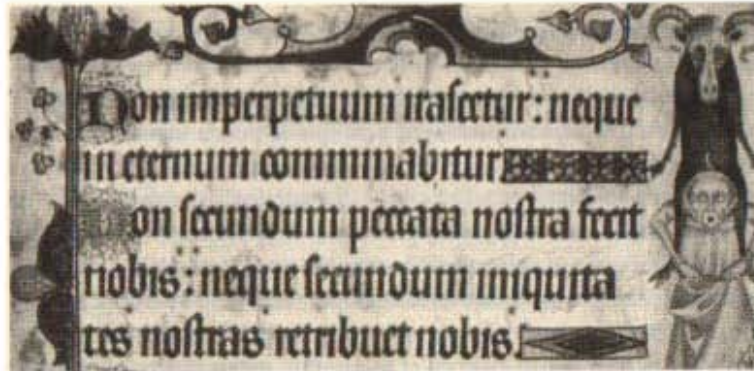 Non imperpetuum irascetur: neque
in eternum comminabitur
Non secundum peccata nostra fecit
nobis: neque secundum iniquita
tes nostras retribuet nobis.